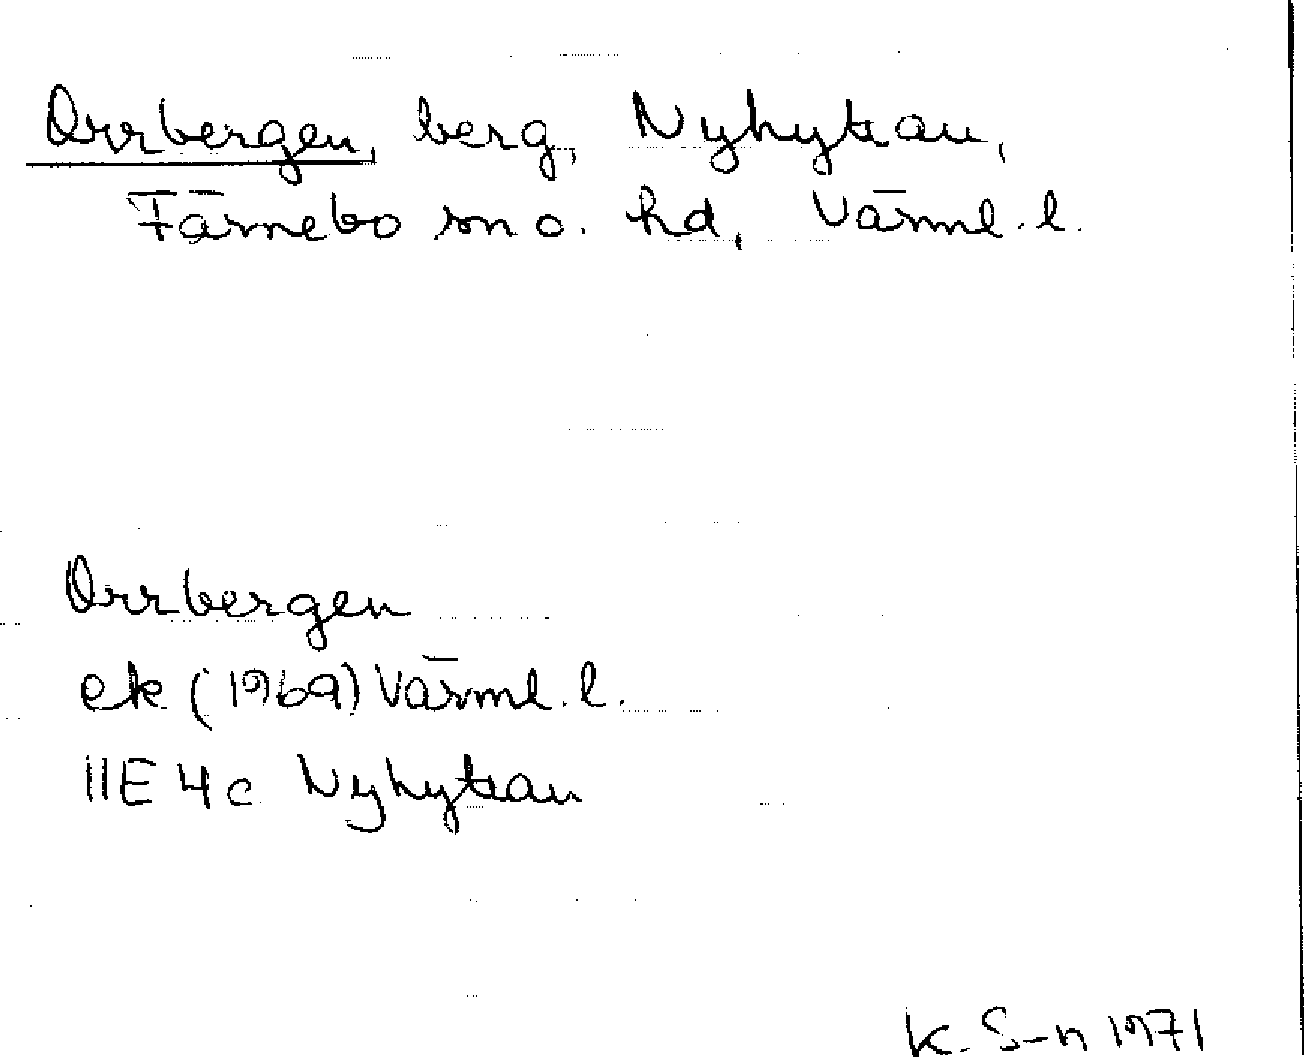 Orrbergen, berg, Nyhyttan,
Färnebo sn o. hd, Värml. l.
Orrbergen
ek (1969) Värml. l.
11E 4c Nyhyttan
K. S-n 1971